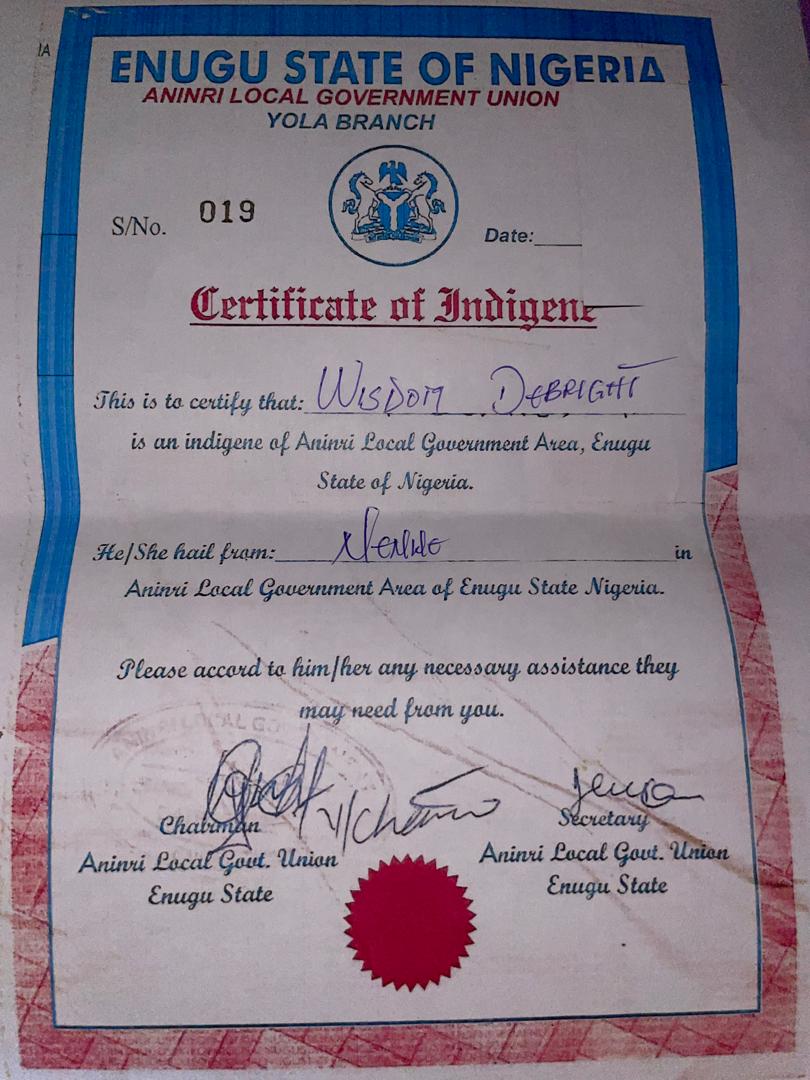 IA
ENUGU STATE OF NIGERIA
ANINRI LOCAL GOVERNMENT UNION
YOLA BRANCH
S/No. 019
Date:____
Certificate of Indigene
This is to certify that: WISDOM DEBRIGHT
is an indigene of Aninri Local Government Area, Enugu
State of Nigeria.
He/She hail from: Nenwe in
Aninri Local Government Area of Enugu State Nigeria.
Please accord to him/her any necessary assistance they
may need from you.
Chairman
Aninri Local Govt. Union
Enugu State
Secretary
Aninri Local Govt. Union
Enugu State